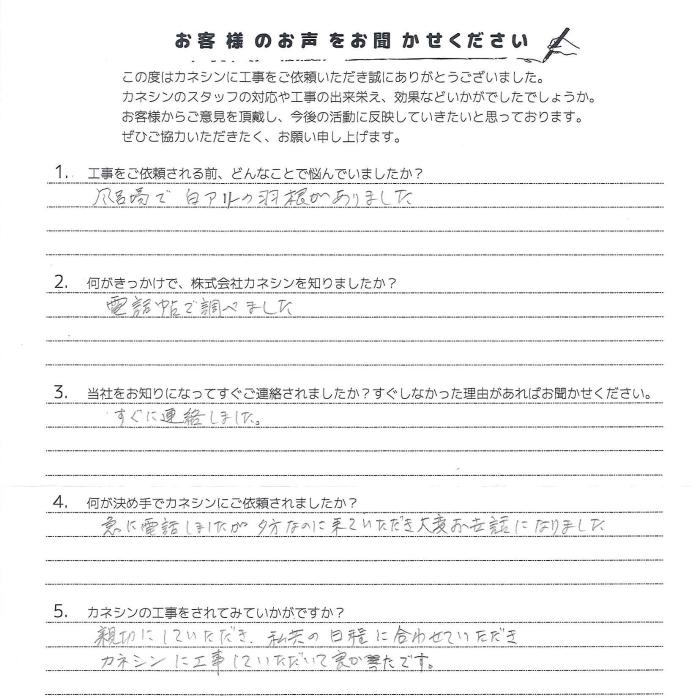 お客様のお声をお聞かせください
この度はカネシンに工事をご依頼いただき誠にありがとうございました。
カネシンのスタッフの対応や工事の出来栄え、効果などいかがでしたでしょうか。
お客様からご意見を頂戴し、今後の活動に反映していきたいと思っております。
ぜひご協力いただきたく、お願い申し上げます。
1. 工事をご依頼される前、どんなことで悩んでいましたか？
風呂場で 白アリの羽根がありました
2. 何がきっかけで、株式会社カネシンを知りましたか？
電話帖で調べました
3. 当社をお知りになってすぐご連絡されましたか？すぐしなかった理由があればお聞かせください。
すぐに連絡しました。
4. 何が決め手でカネシンにご依頼されましたか？
急に電話しましたが 夕方なのに来ていただき大変お世話になりました
5. カネシンの工事をされてみていかがですか？
親切にしていただき、私共の日程に合わせていただき
カネシンに工事していただいて良かったです。